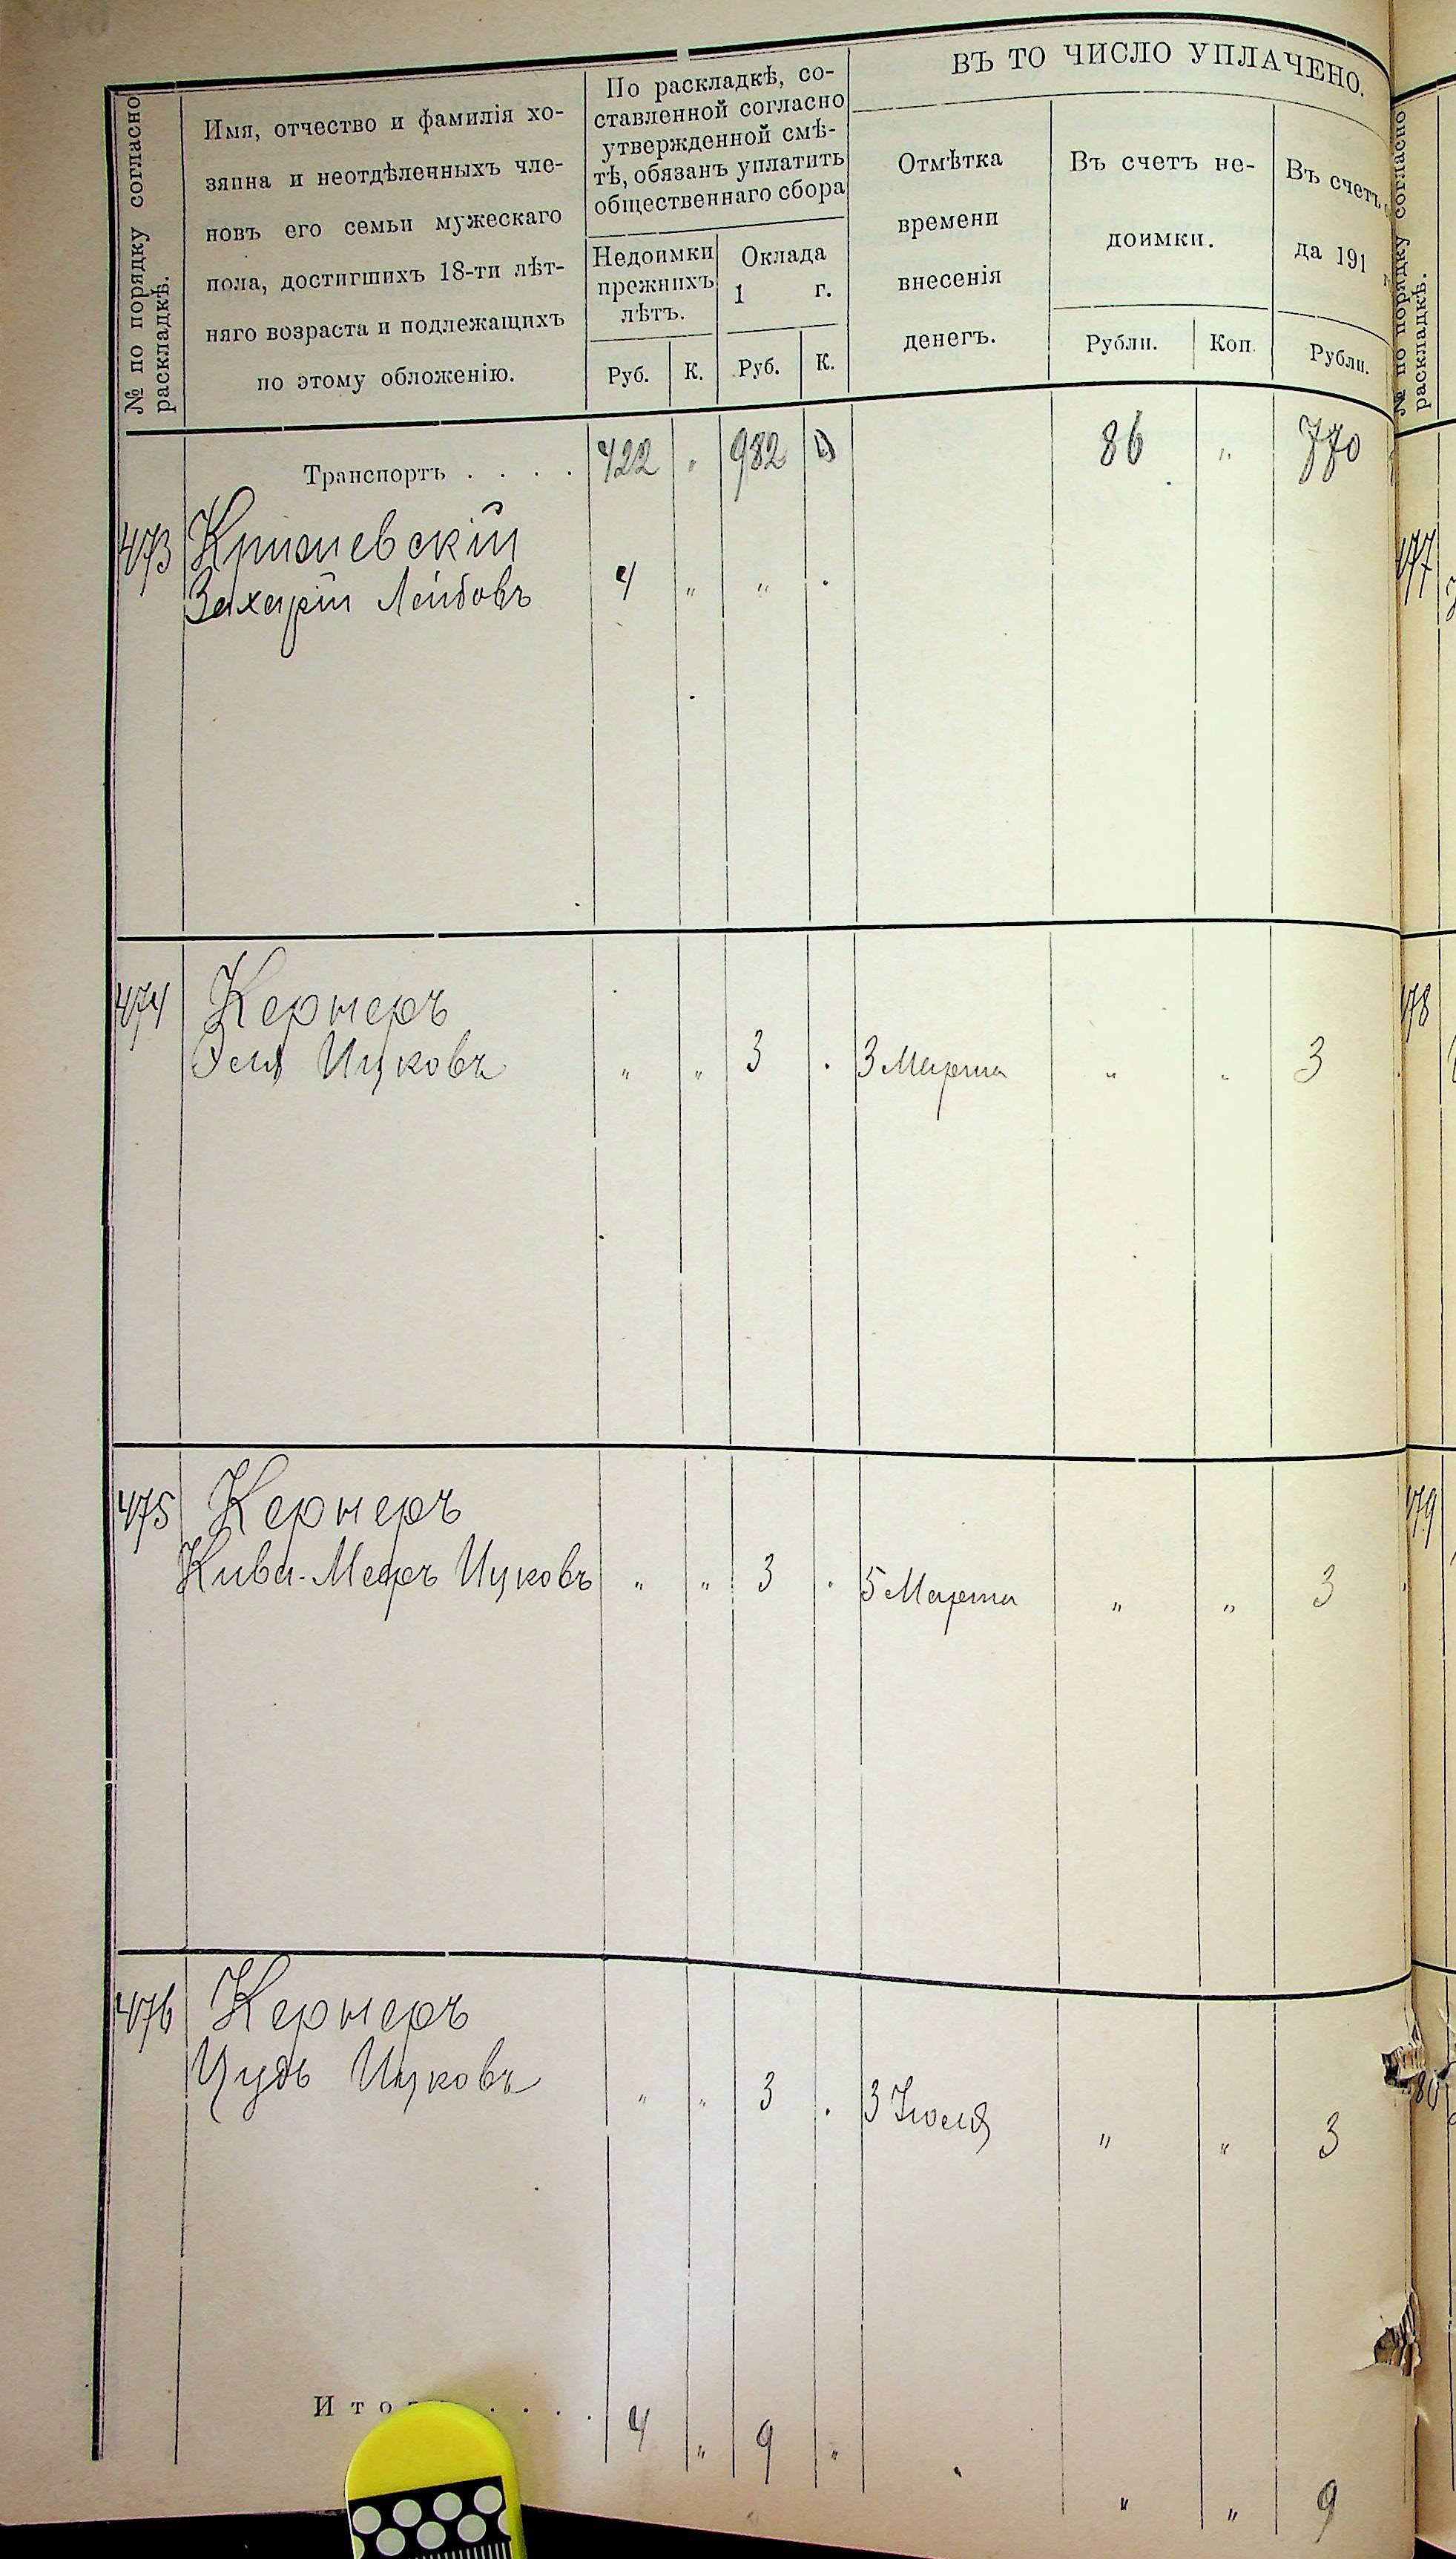 № по порядку согласно
раскладкѣ.
Имя, отчество и фамилія хо-
зяина и неотдѣленныхъ чле-
новъ его семьи мужескаго
пола, достигшихъ 18-ти лѣт-
няго возраста и подлежащихъ
по этому обложенію.
По раскладкѣ, со-
ставленной согласно
утвержденной смѣ-
тѣ, обязанъ уплатить
общественнаго сбора
Недоимки
прежнихъ
лѣтъ.
Оклада
1 г.
Руб. К. Руб. К.
ВЪ ТО ЧИСЛО УПЛАЧЕНО.
Отмѣтка
времени
внесенія
денегъ.
Въ счетъ не-
доимки.
Рубли. Коп.
Въ счетъ
да 191
Рубли.
Транспортъ . . . . 422 " 982 86 " 770
473 Кришевскій
Захарій Лейбовъ 4 " "
474 Кернеръ
Эля Ицковъ " " 3 . 3 Марта " " 3
475 Кернеръ
Кива-Мееръ Ицковъ " " 3 . 5 Марта " " 3
476 Кернеръ
Цудь Ицковъ " " 3 . 3 Іюля " " 3
Ито . . . . 4 " 9 " " " 9
№ по порядку согласно
раскладкѣ.
477
478
479